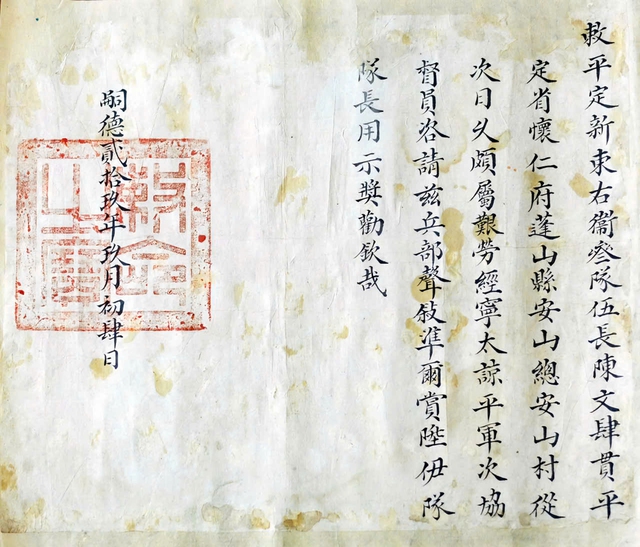 敕平定新東右衛叄隊伍長陳文肆貫平
定省懷仁府蓬山縣安山總安山村從
次日久頗屬艱勞經寧太諒平軍次協
督員咨請茲兵部聲敍準爾賞陞伊隊
隊長用示奬勸欽哉
嗣德貳拾玖年玖月初肆日